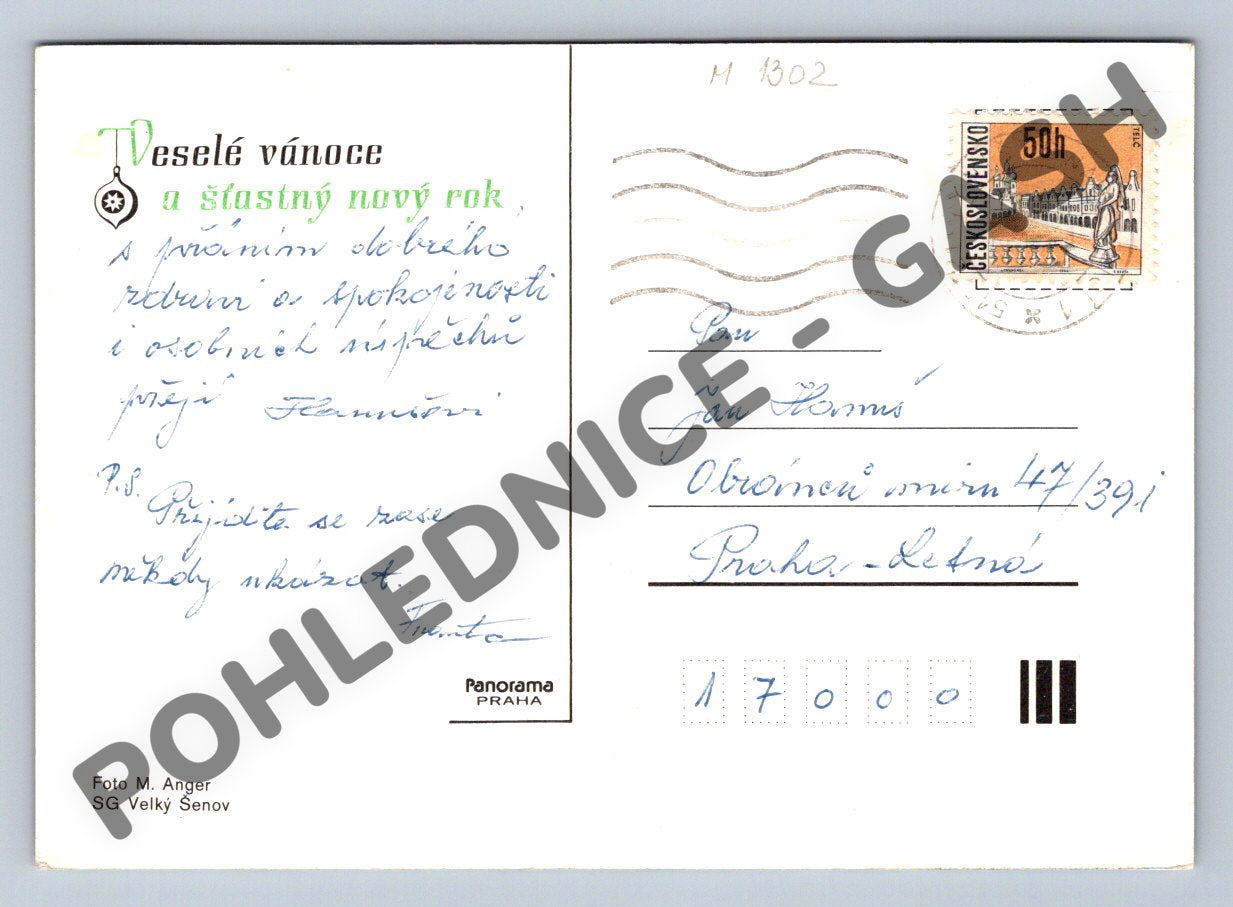 M 1302
Veselé vánoce
a šťastný nový rok
s přáním dobrého
zdraví a spokojenosti
i osobních úspěchů
přejí Hanušovi
P.S.
Přijdťe se zase
někdy ukázat.
Franta
Panorama
PRAHA
Foto M. Anger
SG Velký Šenov
ČESKOSLOVENSKO
50h
TELČ
Pan
Ján Hanuš
Obránců míru 47/391
Praha-Letná
17000
POHLEDNICE - GASH